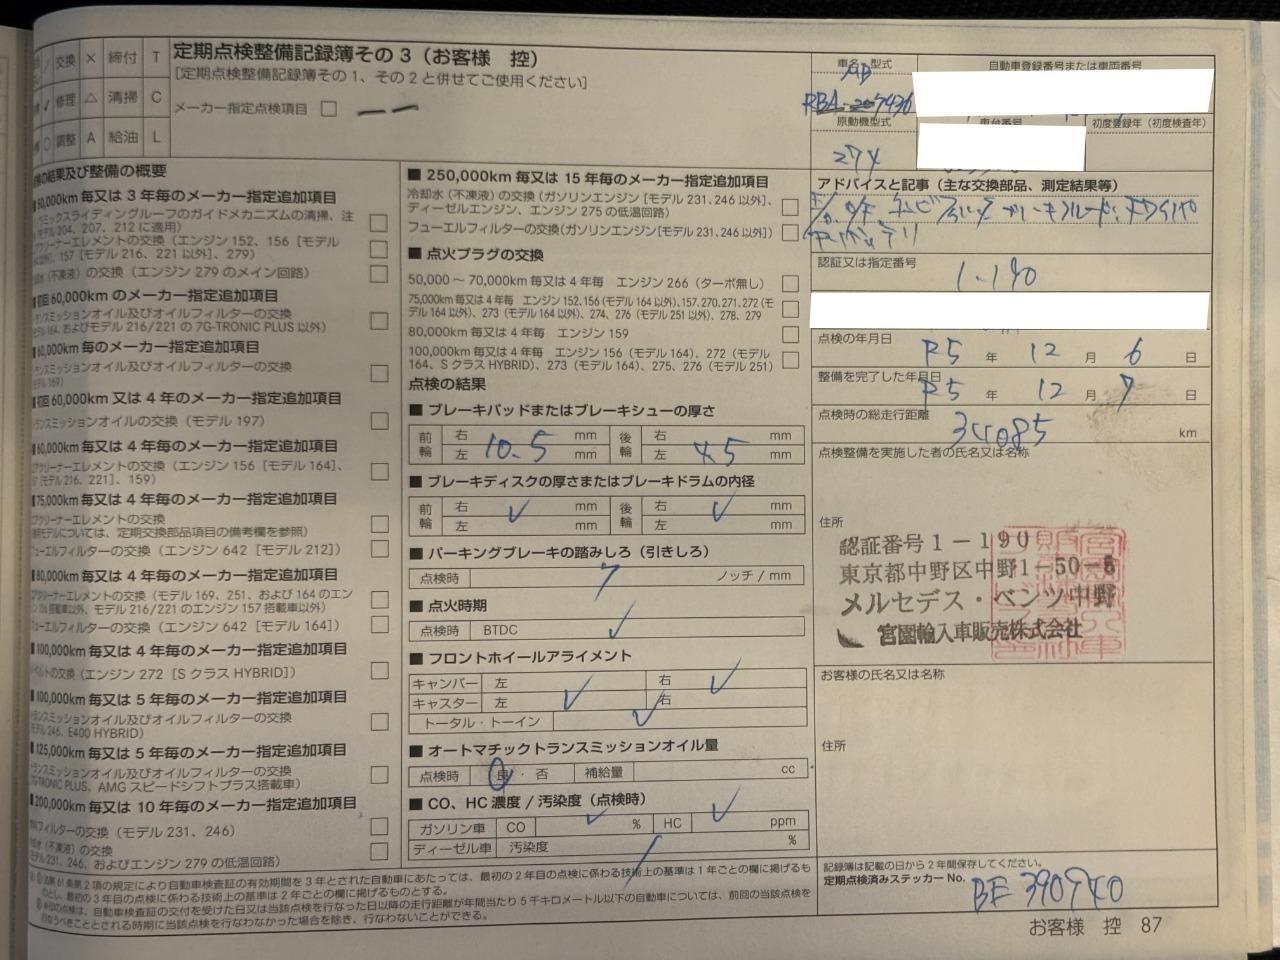 交換 × 締付 T
修理 △ 清掃 C
調整 A 給油 L
定期点検整備記録簿その3（お客様 控）
[定期点検整備記録簿その1、その2と併せてご使用ください]
メーカー指定点検項目 □
車名 型式
自動車登録番号または車両番号
原動機型式
車台番号
初度登録年（初度検査年）
274
の結果及び整備の概要
毎又は3年毎のメーカー指定追加項目
ミックスライディングルーフのガイドメカニズムの清掃、注
モデル204、207、212に適用)
アクリーナーエレメントの交換（エンジン152、156［モデル
以外］、157［モデル216、221以外］、279）
(不凍液) の交換（エンジン279のメイン回路）
初回60,000kmのメーカー指定追加項目
ミッションオイル及びオイルフィルターの交換
164、およびモデル216/221の7G-TRONIC PLUS以外）
60,000km毎のメーカー指定追加項目
ミッションオイル及びオイルフィルターの交換
169)
初回60,000km又は4年毎のメーカー指定追加項目
ランスミッションオイルの交換（モデル197）
60,000km毎又は4年毎のメーカー指定追加項目
アクリーナーエレメントの交換（エンジン156［モデル164］、
［モデル216、221］、159）
75,000km毎又は4年毎のメーカー指定追加項目
アクリーナーエレメントの交換
モデルについては、定期交換部品項目の備考欄を参照)
ューエルフィルターの交換（エンジン642［モデル212］）
80,000km毎又は4年毎のメーカー指定追加項目
アクリーナーエレメントの交換（モデル169、251、および164のエン
搭載車以外、モデル216/221のエンジン157搭載車以外）
ューエルフィルターの交換（エンジン642［モデル164］）
100,000km毎又は4年毎のメーカー指定追加項目
ベルトの交換（エンジン272［SクラスHYBRID］）
100,000km毎又は5年毎のメーカー指定追加項目
ランスミッションオイル及びオイルフィルターの交換
モデル246、E400 HYBRID）
125,000km毎又は5年毎のメーカー指定追加項目
ランスミッションオイル及びオイルフィルターの交換
7G-TRONIC PLUS、AMGスピードシフトプラス搭載車）
200,000km毎又は10年毎のメーカー指定追加項目
フィルターの交換（モデル231、246）
(不凍液) の交換
モデル231、246、およびエンジン279の低温回路）
■ 250,000km毎又は15年毎のメーカー指定追加項目
冷却水（不凍液）の交換（ガソリンエンジン［モデル231、246以外］、
ディーゼルエンジン、エンジン275の低温回路）
フューエルフィルターの交換（ガソリンエンジン［モデル231、246以外］）
■ 点火プラグの交換
50,000～70,000km毎又は4年毎 エンジン266（ターボ無し）
75,000km毎又は4年毎 エンジン152、156（モデル164以外）、157、270、271、272（モ
デル164以外）、273（モデル164以外）、274、276（モデル251以外）、278、279
80,000km毎又は4年毎 エンジン159
100,000km毎又は4年毎 エンジン156（モデル164）、272（モデル
164、SクラスHYBRID）、273（モデル164）、275、276（モデル251）
点検の結果
■ ブレーキパッドまたはブレーキシューの厚さ
前輪 右 mm 後輪 右 mm
左 10.5 mm 左 4.5 mm
■ ブレーキディスクの厚さまたはブレーキドラムの内径
前輪 右 ✓ mm 後輪 右 ✓ mm
左 mm 左 mm
■ パーキングブレーキの踏みしろ（引きしろ）
点検時 7 ノッチ / mm
■ 点火時期
点検時 BTDC ✓
■ フロントホイールアライメント
キャンバー 左 右 ✓
キャスター 左 ✓ 右
トータル・トーイン ✓
■ オートマチックトランスミッションオイル量
点検時 良・否 補給量 cc
■ CO、HC濃度 / 汚染度（点検時）
ガソリン車 CO ✓ % HC ✓ ppm
ディーゼル車 汚染度 %
アドバイスと記事（主な交換部品、測定結果等）
認証又は指定番号
1-190
点検の年月日
R5 年 12 月 6 日
整備を完了した年月日
R5 年 12 月 7 日
点検時の総走行距離
km
点検整備を実施した者の氏名又は名称
住所
認証番号1－190
東京都中野区中野1－50－5
メルセデス・ベンツ中野
宮園輸入車販売株式会社
お客様の氏名又は名称
住所
記録簿は記載の日から2年間保存してください。
定期点検済みステッカー No. BE390940
第2項の規定により自動車検査証の有効期間を3年とされた自動車にあたっては、最初の2年目の点検に係わる技術上の基準は1年ごとの欄に掲げるもの
とし、最初の3年目の点検に係わる技術上の基準は2年ごとの欄に掲げるものとする。
の点検は、自動車検査証の交付を受けた日又は当該点検を行なった日以降の走行距離が年間当たり5千キロメートル以下の自動車については、前回の当該点検を
行なうべきこととされる時期に当該点検を行なわなかった場合を除き、行なわないことができる。
お客様 控 87